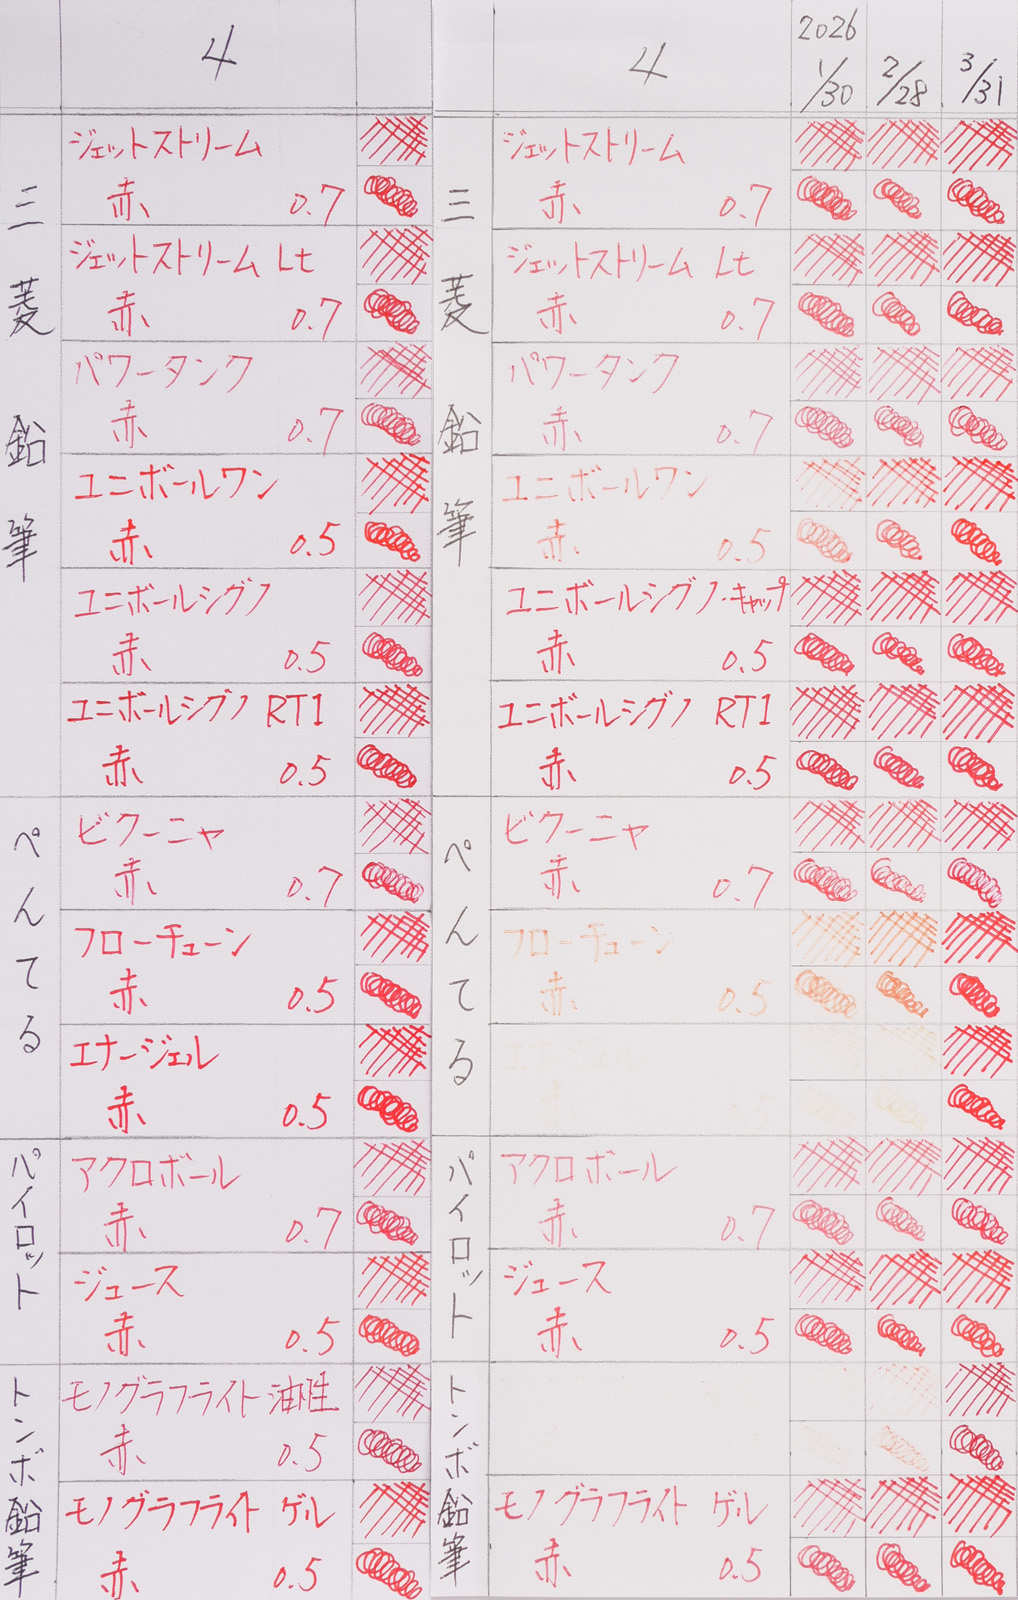 4
三菱鉛筆
ジェットストリーム
赤 0.7
ジェットストリーム Lt
赤 0.7
パワータンク
赤 0.7
ユニボールワン
赤 0.5
ユニボールシグノ
赤 0.5
ユニボールシグノ RT1
赤 0.5
ぺんてる
ビクーニャ
赤 0.7
フローチューン
赤 0.5
エナージェル
赤 0.5
パイロット
アクロボール
赤 0.7
ジュース
赤 0.5
トンボ鉛筆
モノグラフライト 油性
赤 0.5
モノグラフライト ゲル
赤 0.5
4
2026
1/30 2/28 3/31
三菱鉛筆
ジェットストリーム
赤 0.7
ジェットストリーム Lt
赤 0.7
パワータンク
赤 0.7
ユニボールワン
赤 0.5
ユニボールシグノ・キャップ
赤 0.5
ユニボールシグノ RT1
赤 0.5
ぺんてる
ビクーニャ
赤 0.7
フローチューン
赤 0.5
エナージェル
赤 0.5
パイロット
アクロボール
赤 0.7
ジュース
赤 0.5
トンボ鉛筆
モノグラフライト ゲル
赤 0.5